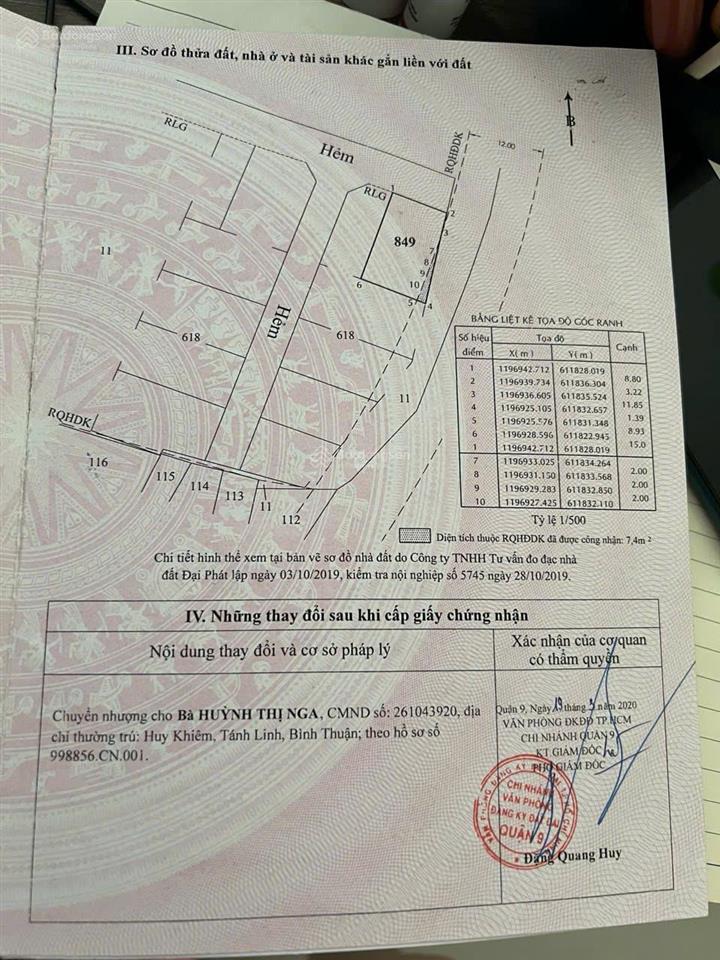 Batdongsan
III. Sơ đồ thửa đất, nhà ở và tài sản khác gắn liền với đất
B
RLG
Hẻm
RQHĐĐK
12.00
RLG
1
2
849
3
7
8
9
10
11
6
5
4
Hẻm
618
618
11
RQHDK
116
115
114
113
11
112
BẢNG LIỆT KÊ TỌA ĐỘ GÓC RANH
Số hiệu điểm Tọa độ Cạnh
X( m ) Y( m )
1 1196942.712 611828.019
8.80
2 1196939.734 611836.304
3.22
3 1196936.605 611835.524
11.85
4 1196925.105 611832.657
1.39
5 1196925.576 611831.348
8.93
6 1196928.596 611822.945
15.0
1 1196942.712 611828.019
7 1196933.025 611834.264
2.00
8 1196931.150 611833.568
2.00
9 1196929.283 611832.850
2.00
10 1196927.425 611832.110
Batdongsan
Tỷ lệ 1/500
Diện tích thuộc RQHĐĐK đã được công nhận: 7,4m²
Chi tiết hình thể xem tại bản vẽ sơ đồ nhà đất do Công ty TNHH Tư vấn đo đạc nhà
đất Đại Phát lập ngày 03/10/2019, kiểm tra nội nghiệp số 5745 ngày 28/10/2019.
IV. Những thay đổi sau khi cấp giấy chứng nhận
Nội dung thay đổi và cơ sở pháp lý
Xác nhận của cơ quan
có thẩm quyền
Chuyển nhượng cho Bà HUỲNH THỊ NGA, CMND số: 261043920, địa
chỉ thường trú: Huy Khiêm, Tánh Linh, Bình Thuận; theo hồ sơ số
998856.CN.001.
Quận 9, Ngày 19 tháng 3 năm 2020
VĂN PHÒNG ĐKĐĐ TP.HCM
CHI NHÁNH QUẬN 9
KT GIÁM ĐỐC
PHÓ GIÁM ĐỐC
CHI NHÁNH
VĂN PHÒNG
ĐĂNG KÝ ĐẤT ĐAI
QUẬN 9
Đặng Quang Huy